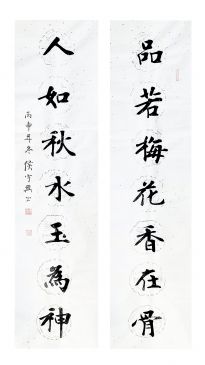 品若梅花香在骨
人如秋水玉為神
丙申年冬